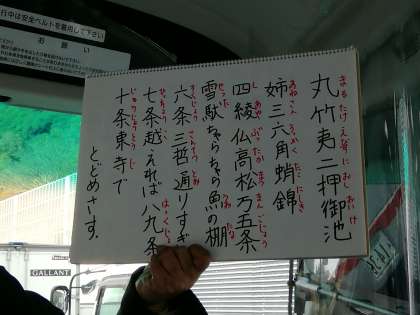 行中は安全ベルトを着用して下さい
お願い
丸竹夷二押御池
まるたけえびすにおしおいけ
姉三六角蛸錦
あねさんろっかくたこにしき
四綾仏高松万五条
しあやぶったかまつまんごじょう
雪駄ちゃらちゃら魚の棚
せった
たな
六条三哲通りすぎ
ろくじょうさんてつとおり
七条越えれば八九条
ひちじょう
はっくじょう
十条東寺で
じゅうじょうとうじ
とどめさす。
GALLANT